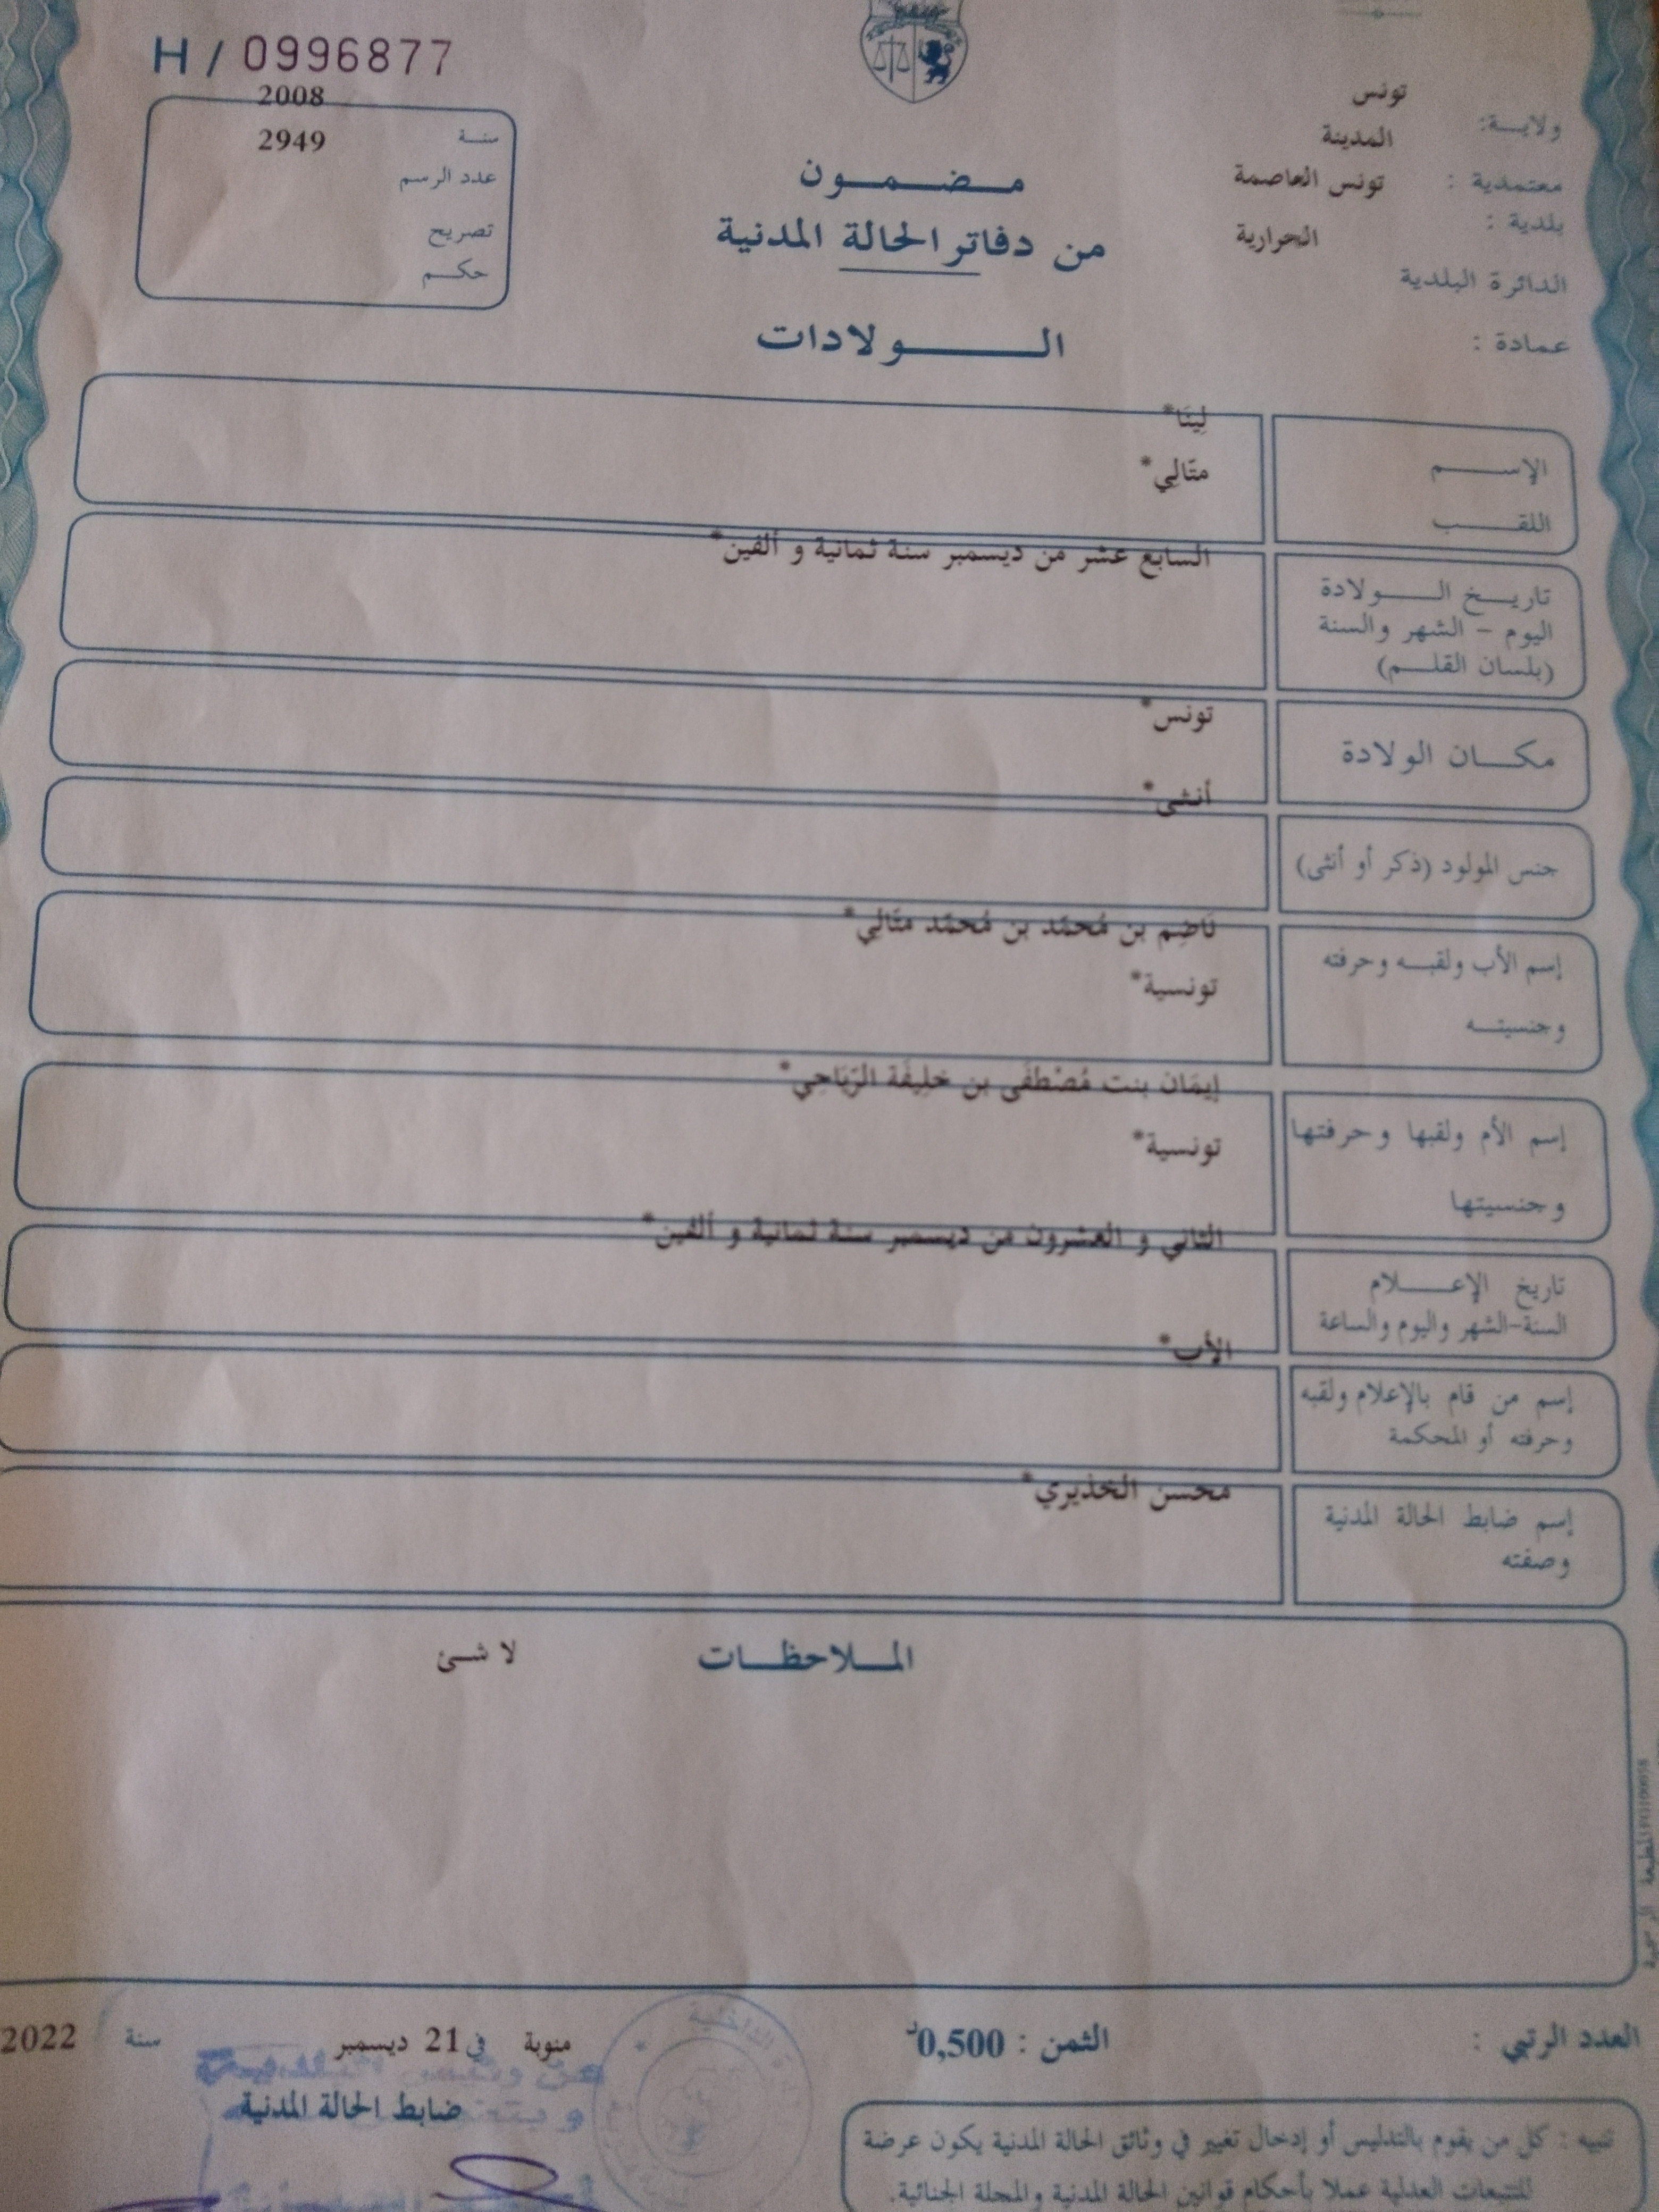 H / 0996877
2008
سنة 2949
عدد الرسم
تصريح
حكم
تونس
ولاية:
المدينة
معتمدية : تونس العاصمة
بلدية :
الحرارية
الدائرة البلدية
عمادة :
مضمون
من دفاتر الحالة المدنية
الولادات
لِينَا*
الإسم
متَالِي*
اللقب
السابع عشر من ديسمبر سنة ثمانية و ألفين*
تاريخ الولادة
اليوم - الشهر والسنة
(بلسان القلم)
تونس*
مكان الولادة
أنثى*
جنس المولود (ذكر أو أنثى)
نَاضِم بن مُحمّد بن مُحمّد متَالِي*
إسم الأب ولقبه وحرفته
تونسية*
وجنسيته
إيمَان بنت مُصْطفَى بن خلِيفَة الرّيَاحِي*
إسم الأم ولقبها وحرفتها
تونسية*
وجنسيتها
الثاني و العشرون من ديسمبر سنة ثمانية و ألفين*
تاريخ الإعلام
السنة-الشهر واليوم والساعة
الأب*
إسم من قام بالإعلام ولقبه
وحرفته أو المحكمة
محسن الخذيري*
إسم ضابط الحالة المدنية
وصفته
الملاحظات لا شئ
العدد الرتبي :
الثمن : 0,500د
منوبة في 21 ديسمبر سنة 2022
ضابط الحالة المدنية
تنبيه : كل من يقوم بالتدليس أو إدخال تغيير في وثائق الحالة المدنية يكون عرضة
للتتبعات العدلية عملا بأحكام قوانين الحالة المدنية والمجلة الجنائية.